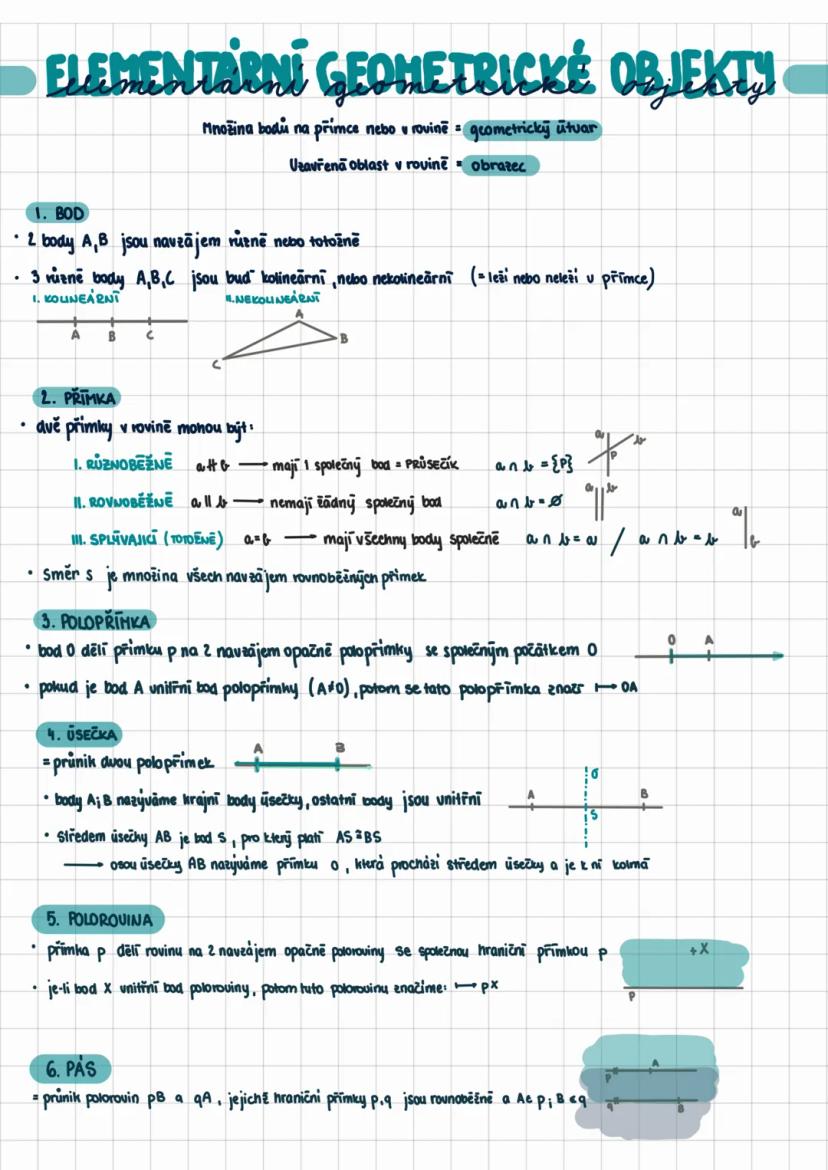 ELEMENTÁRNÍ GEOMETRICKÉ OBJEKTY
elementární geometrické objekty
Množina bodů na přímce nebo v rovině = geometrický útvar
Uzavřená oblast v rovině = obrazec
1. BOD
• 2 body A,B jsou navzájem různé nebo totožné
• 3 různé body A,B,C jsou buď kolineární, nebo nekolineární (= leží nebo neleží v přímce)
I. KOLINEÁRNÍ II. NEKOLINEÁRNÍ
A B C
A
B
C
2. PŘÍMKA
• dvě přímky v rovině mohou být:
I. RŮZNOBĚŽNÉ a ∦ b → mají 1 společný bod = PRŮSEČÍK a ∩ b = {P}
a b P
II. ROVNOBĚŽNÉ a ∥ b → nemají žádný společný bod a ∩ b = ∅
a b
III. SPLÝVAJÍCÍ (TOTOŽNÉ) a=b → mají všechny body společné a ∩ b = a / a ∩ b = b
a b
• Směr s je množina všech navzájem rovnoběžných přímek
3. POLOPŘÍMKA
• bod O dělí přímku p na 2 navzájem opačné polopřímky se společným počátkem O
O A
• pokud je bod A vnitřní bod polopřímky (A≠O), potom se tato polopřímka značí ↦ OA
4. ÚSEČKA
A B
= průnik dvou polopřímek
• body A; B nazýváme krajní body úsečky, ostatní body jsou vnitřní
A o S B
• Středem úsečky AB je bod S, pro který platí AS ≅ BS
→ osou úsečky AB nazýváme přímku o, která prochází středem úsečky a je k ní kolmá
5. POLOROVINA
• přímka p dělí rovinu na 2 navzájem opačné poloroviny se společnou hraniční přímkou p
+ X
p
• je-li bod X vnitřní bod poloroviny, potom tuto polorovinu značíme: ↦ pX
6. PÁS
= průnik polorovin pB a qA, jejichž hraniční přímky p,q jsou rovnoběžné a A∈p; B∈q
p A
q B